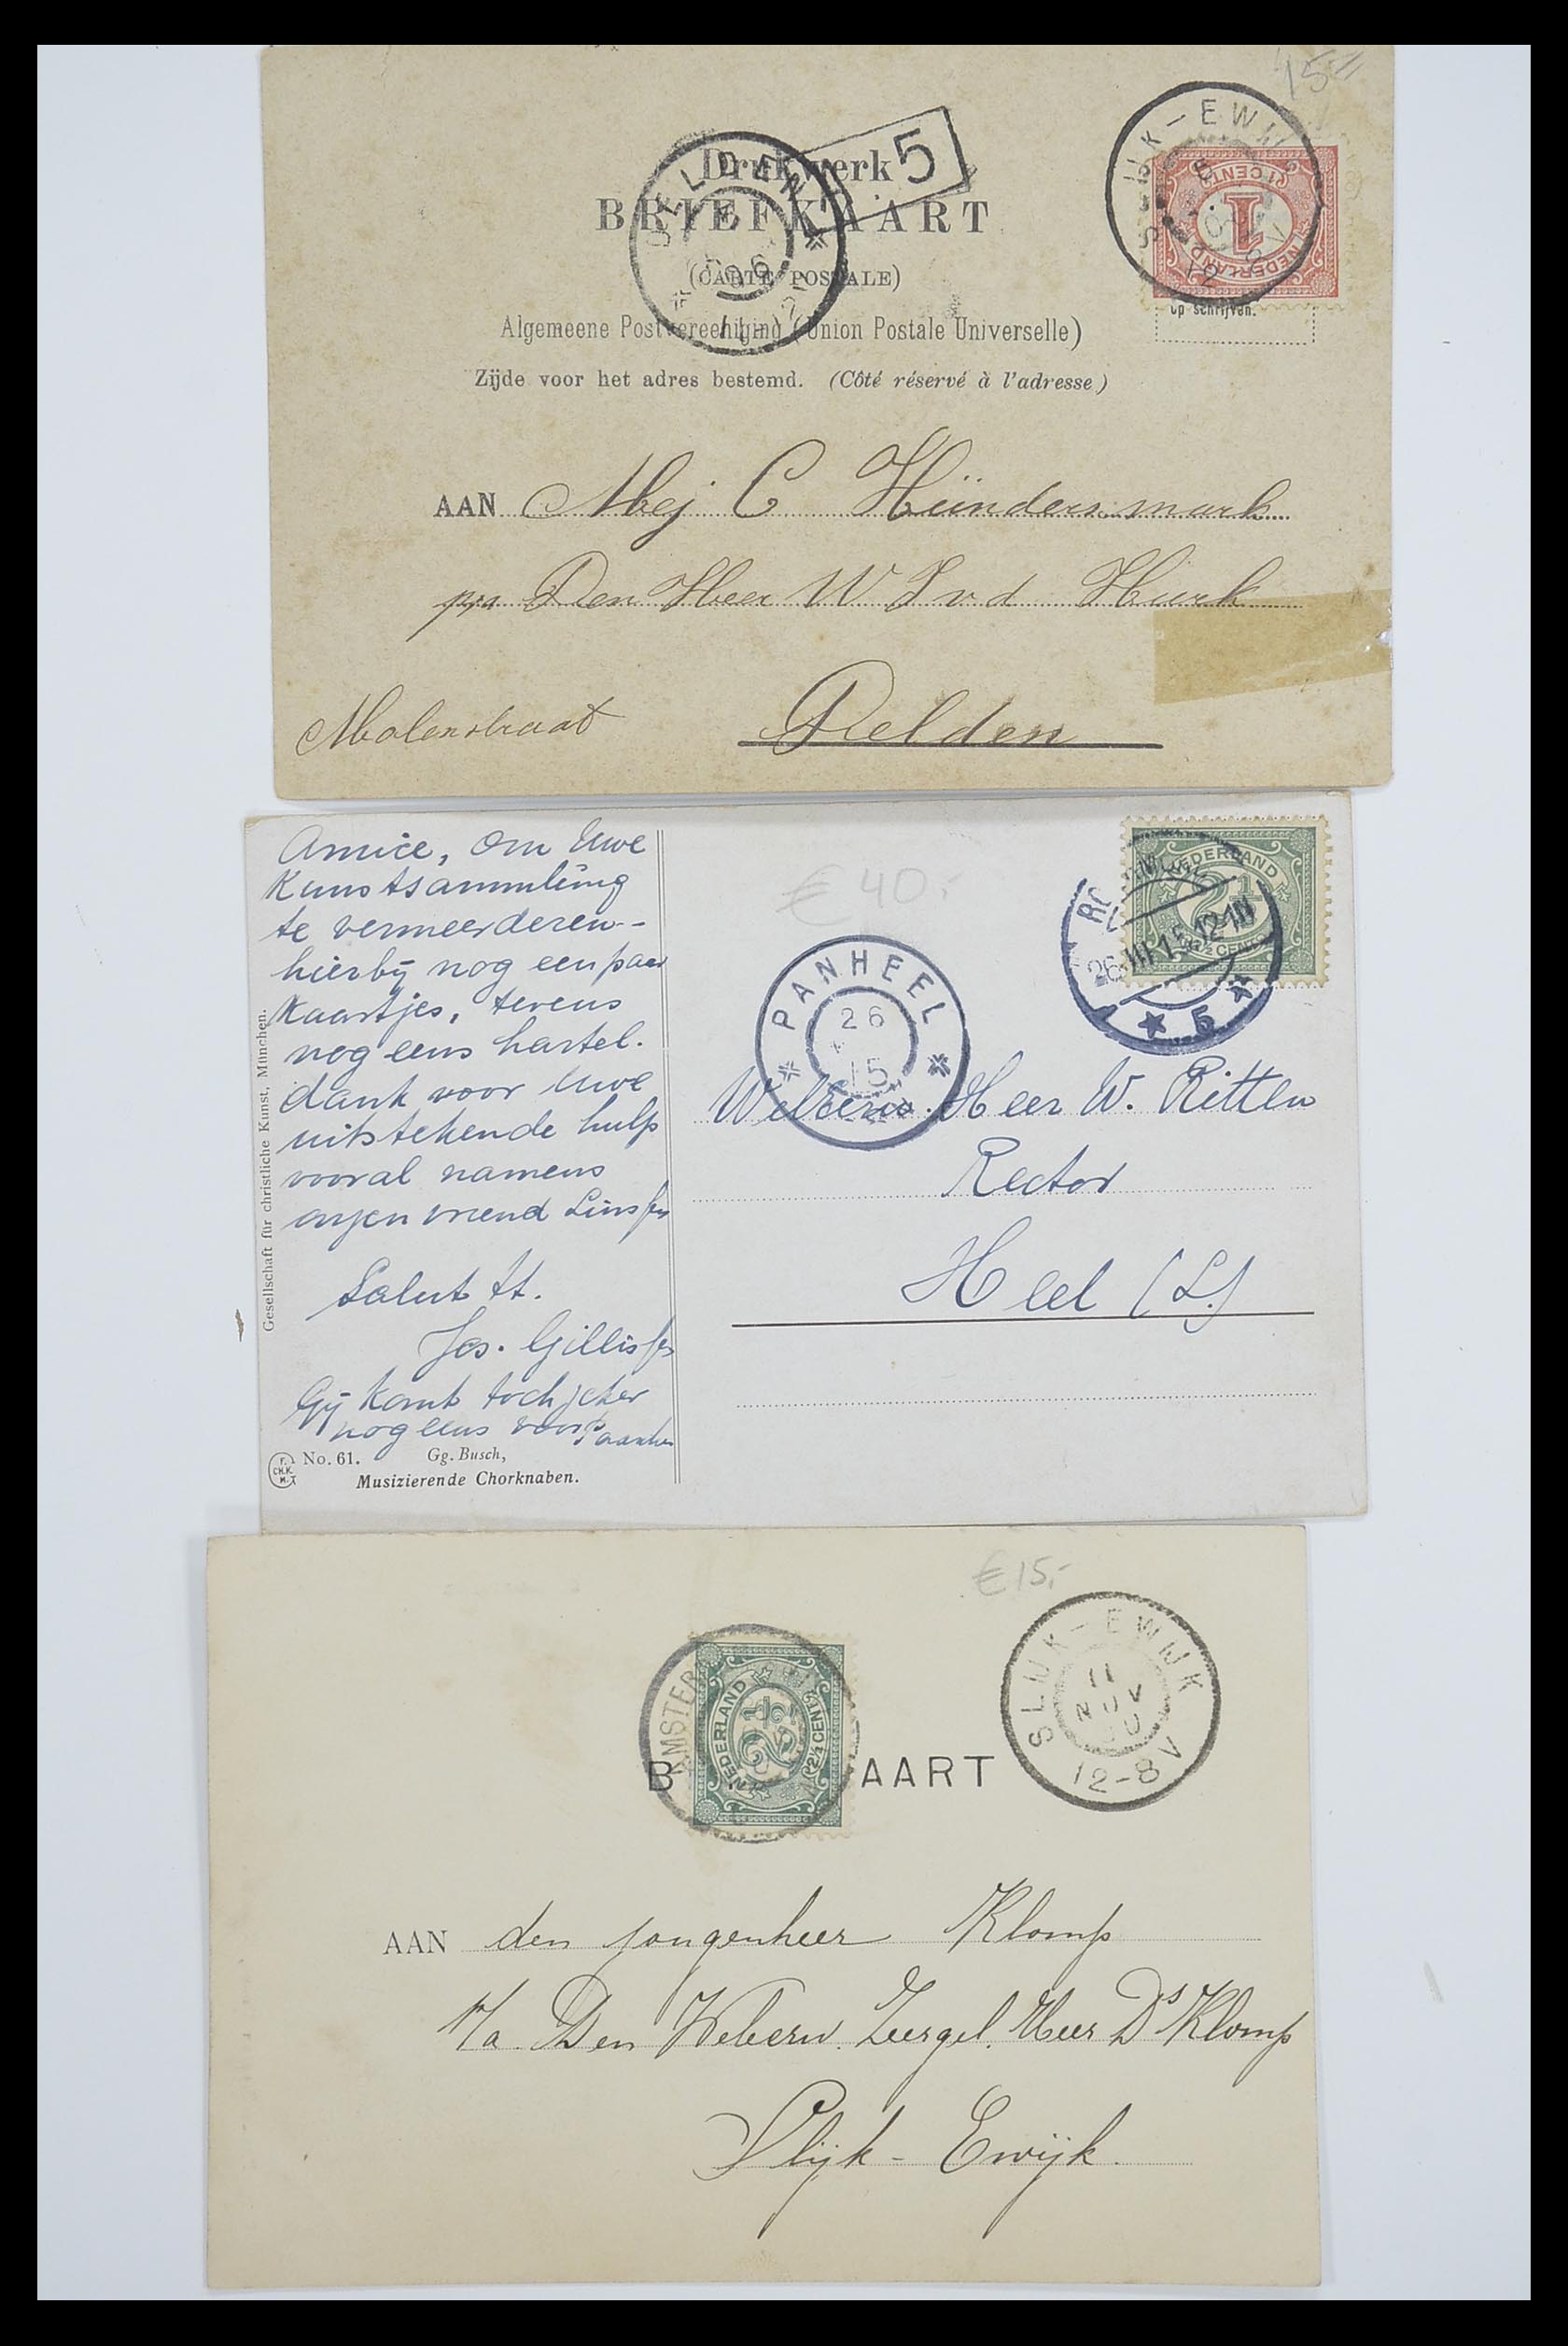 15=
Drukwerk
5
BRIEFKAART
(CARTE POSTALE)
Algemeene Postvereeniging (Union Postale Universelle)
Zijde voor het adres bestemd. (Côté réservé à l'adresse)
SLIJK-EWIJK
NEDERLAND
1 CENT
1
op schrijven.
AAN Mej C Hündersmark
p/a Den Heer W J v d Hurk
Molenstraat
Velden
Amice, om Uwe
Kunstsammlung
te vermeerderen-
hierbij nog een paar
Kaartjes, tevens
nog eens hartel.
dank voor Uwe
uitstekende hulp
vooral namens
onzen vriend
Salut tt.
Jos. Gillissen
Gij komt toch zeker
nog eens voor
Gesellschaft für christliche Kunst, München.
No. 61. Gg. Busch,
Musizierende Chorknaben.
€ 40,-
NEDERLAND
2½
2½ CENT
26.III.15.12-1N
5
PANHEEL
26
15
WelEerw. Heer W. Ritten
Rector
Heel (L.)
€15,-
AMSTER
NEDERLAND
2½
2½ CENT
B AART
SLIJK-EWIJK
11
NOV
12-8V
AAN den jongenheer Klomp
p/a. Den Weleerw. Zeergel. Heer Ds Klomp
Slijk-Ewijk.